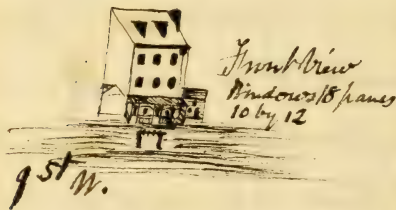 Front View
Windows 18 panes
10 by 12
9 St W.